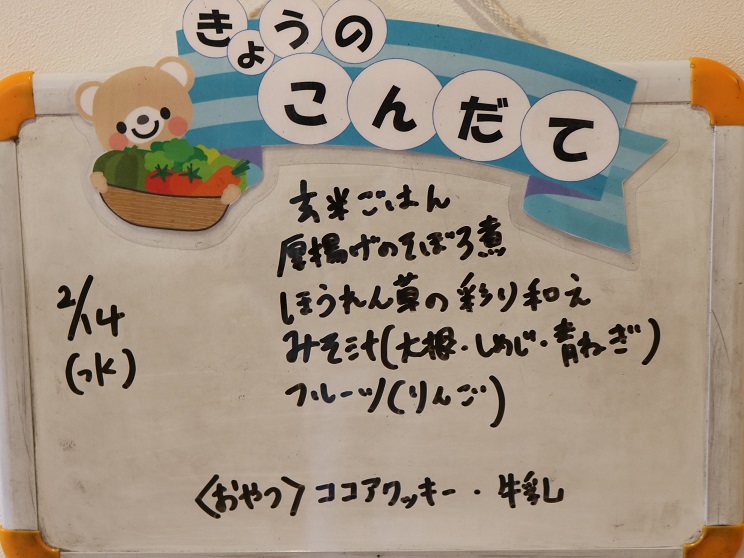 きょうの
こんだて
2/14
(水)
玄米ごはん
厚揚げのそぼろ煮
ほうれん草の彩り和え
みそ汁(大根・しめじ・青ねぎ)
フルーツ(りんご)
〈おやつ〉ココアクッキー・牛乳